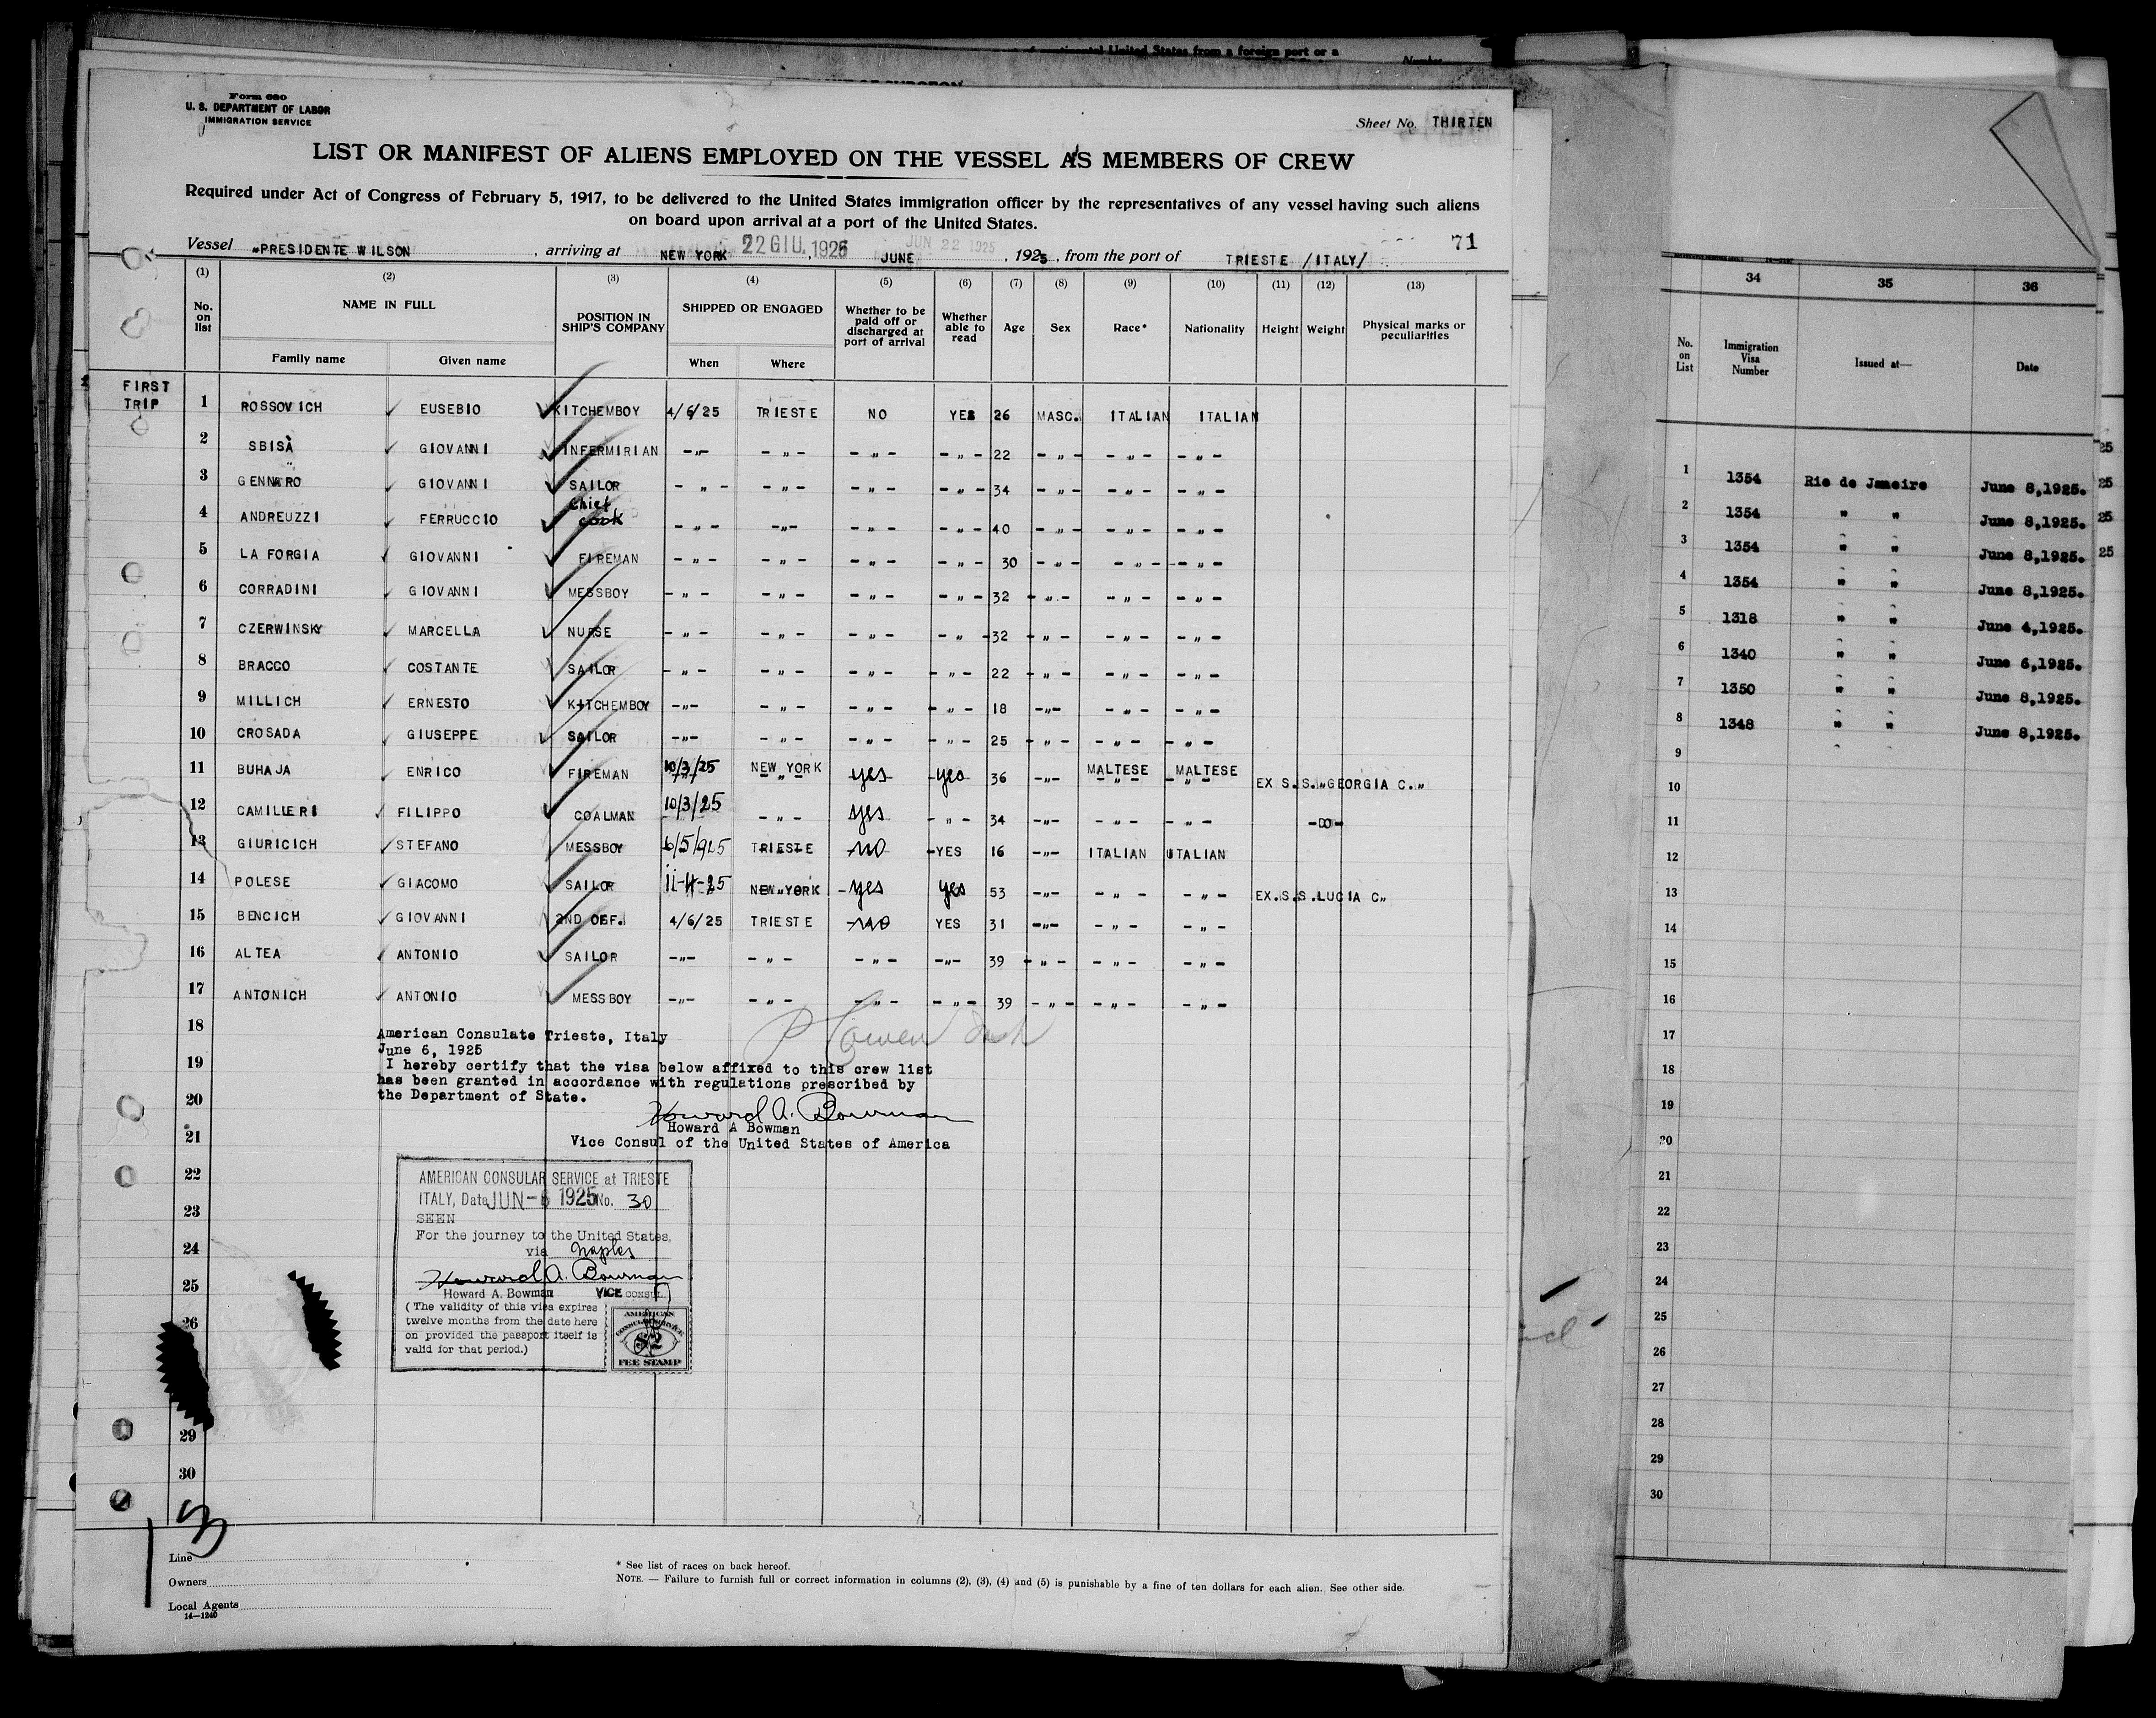 of continental United States from a foreign port or a
Number
Form 680
U. S. DEPARTMENT OF LABOR
IMMIGRATION SERVICE
Sheet No. THIRTEN
LIST OR MANIFEST OF ALIENS EMPLOYED ON THE VESSEL AS MEMBERS OF CREW
Required under Act of Congress of February 5, 1917, to be delivered to the United States immigration officer by the representatives of any vessel having such aliens
on board upon arrival at a port of the United States.
Vessel "PRESIDENTE WILSON , arriving at NEW YORK 22 GIU. 1925 , JUNE JUN 22 1925 , 1925 , from the port of TRIESTE /ITALY/ 71
(1) (2) (3) (4) (5) (6) (7) (8) (9) (10) (11) (12) (13)
No. on list NAME IN FULL POSITION IN SHIP'S COMPANY SHIPPED OR ENGAGED Whether to be paid off or discharged at port of arrival Whether able to read Age Sex Race* Nationality Height Weight Physical marks or peculiarities
Family name Given name When Where
FIRST TRIP
1 ROSSOVICH EUSEBIO KITCHEMBOY 4/6/25 TRIESTE NO YES 26 MASC. ITALIAN ITALIAN
2 SBISÀ GIOVANNI INFERMIRIAN -"- -"- -"- -"- 22 -"- -"- -"-
3 GENNARO GIOVANNI SAILOR -"- -"- -"- -"- 34 -"- -"- -"-
4 ANDREUZZI FERRUCCIO Chief cook -"- -"- -"- -"- 40 -"- -"- -"-
5 LA FORGIA GIOVANNI FIREMAN -"- -"- -"- -"- 30 -"- -"- -"-
6 CORRADINI GIOVANNI MESSBOY -"- -"- -"- -"- 32 -"- -"- -"-
7 CZERWINSKY MARCELLA NURSE -"- -"- -"- -"- 32 -"- -"- -"-
8 BRACCO COSTANTE SAILOR -"- -"- -"- -"- 22 -"- -"- -"-
9 MILLICH ERNESTO KITCHEMBOY -"- -"- -"- -"- 18 -"- -"- -"-
10 CROSADA GIUSEPPE SAILOR -"- -"- -"- -"- 25 -"- -"- -"-
11 BUHAJA ENRICO FIREMAN 10/3/25 NEW YORK yes yes 36 -"- MALTESE MALTESE EX S.S."GEORGIA C."
12 CAMILLERI FILIPPO COALMAN 10/3/25 -"- yes -"- 34 -"- -"- -"- -DO-
13 GIURICICH STEFANO MESSBOY 6/5/925 TRIESTE NO YES 16 -"- ITALIAN ITALIAN
14 POLESE GIACOMO SAILOR 11-4-25 NEW YORK yes yes 53 -"- -"- -"- EX.S.S.LUCIA C"
15 BENCICH GIOVANNI 2ND OFF. 4/6/25 TRIESTE no YES 31 -"- -"- -"-
16 ALTEA ANTONIO SAILOR -"- -"- -"- -"- 39 -"- -"- -"-
17 ANTONICH ANTONIO MESSBOY -"- -"- -"- -"- 39 -"- -"- -"-
18
American Consulate Trieste, Italy
June 6, 1925
19 I hereby certify that the visa below affixed to this crew list
has been granted in accordance with regulations prescribed by
20 the Department of State.
Howard A. Bowman
Howard A Bowman
21 Vice Consul of the United States of America
22 AMERICAN CONSULAR SERVICE at TRIESTE
ITALY, Date JUN - 6 1925 No. 30
23 SEEN
For the journey to the United States,
24 via Naples
Howard A. Bowman
25 Howard A. Bowman VICE CONSUL
(The validity of this visa expires
26 twelve months from the date here
on provided the passport itself is
valid for that period.)
AMERICAN
CONSULAR SERVICE
$2
FEE STAMP
29
30
13
Line
Owners
Local Agents
14—1240
* See list of races on back hereof.
NOTE. — Failure to furnish full or correct information in columns (2), (3), (4) and (5) is punishable by a fine of ten dollars for each alien. See other side.
34 35 36
No. on List Immigration Visa Number Issued at— Date
25
1 1354 Rio de Janeiro June 8,1925. 25
2 1354 " " June 8,1925. 25
3 1354 " " June 8,1925. 25
4 1354 " " June 8,1925.
5 1318 " " June 4,1925.
6 1340 " " June 6,1925.
7 1350 " " June 8,1925.
8 1348 " " June 8,1925.
9
10
11
12
13
14
15
16
17
18
19
20
21
22
23
24
25
26
27
28
29
30